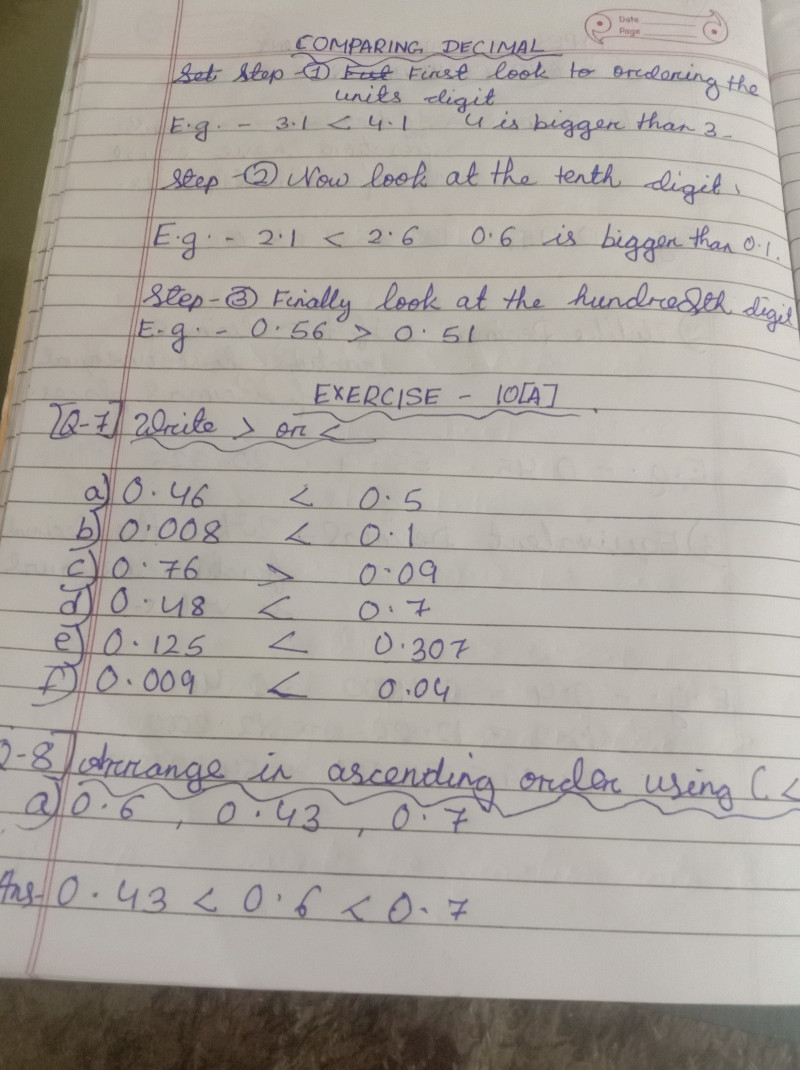 Date
Page
COMPARING DECIMAL
Set Step-① First First look to ordering the
units digit
E.g. - 3.1 < 4.1 4 is bigger than 3-
Step-② Now look at the tenth digit.
E.g. - 2.1 < 2.6 0.6 is bigger than 0.1.
Step-③ Finally look at the hundredth digit
E.g. - 0.56 > 0.51
EXERCISE - 10[A]
[Q-7] Write > or <
a) 0.46 < 0.5
b) 0.008 < 0.1
c) 0.76 > 0.09
d) 0.48 < 0.7
e) 0.125 < 0.307
f) 0.009 < 0.04
Q-8] Arrange in ascending order using (<
a) 0.6 , 0.43 , 0.7
Ans- 0.43 < 0.6 < 0.7